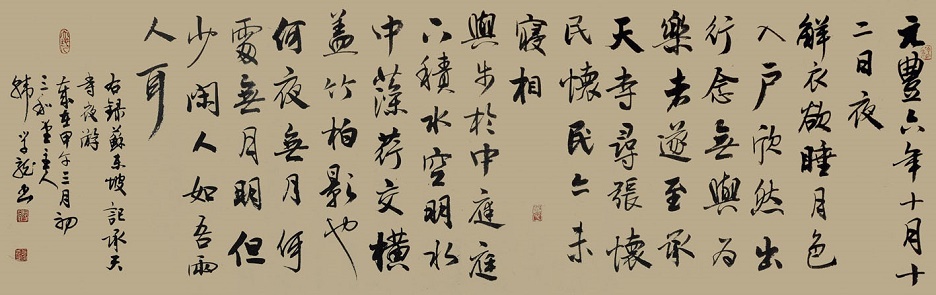 元豐六年十月十
二日夜
解衣欲睡月色
入户欣然出
行念無與为
樂者遂至承
天寺尋張懷
民懷民亦未
寢相
與步於中庭庭
下積水空明水
中藻荇交橫
盖竹柏影也
何夜無月何
處無月明但
少闲人如吾兩
人耳
右録蘇东坡記承天
寺夜游
歲在甲午三月初
三 主人
学 书